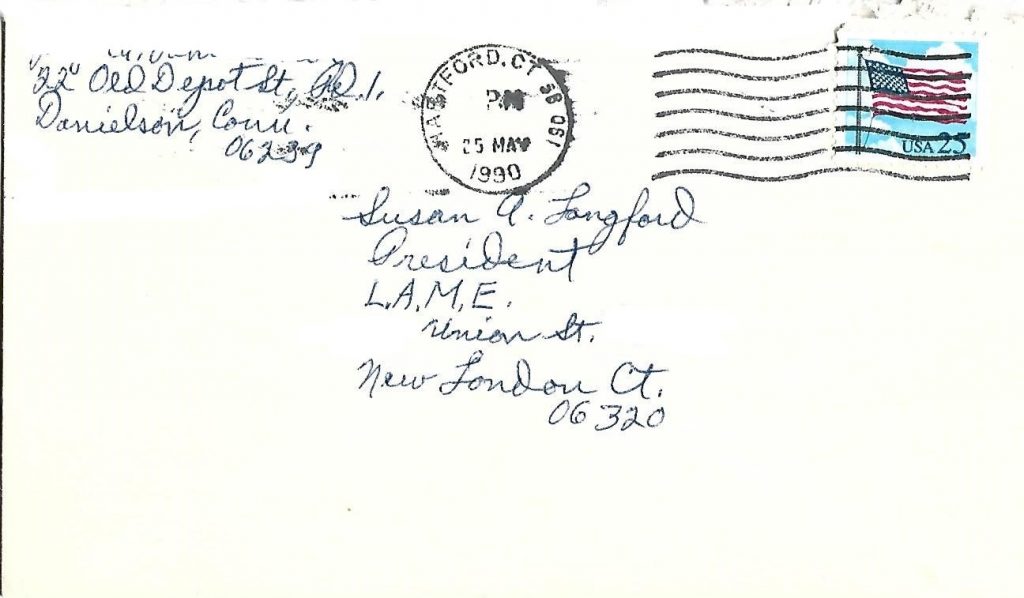 "22" Old Depot St, Rd. 1.
Danielson, Conn.
06239
HARTFORD, CT SB 061
PM
25 MAY
1990
USA 25
Susan A. Longford
President
L.A.M.E.
Union St.
New London Ct.
06320